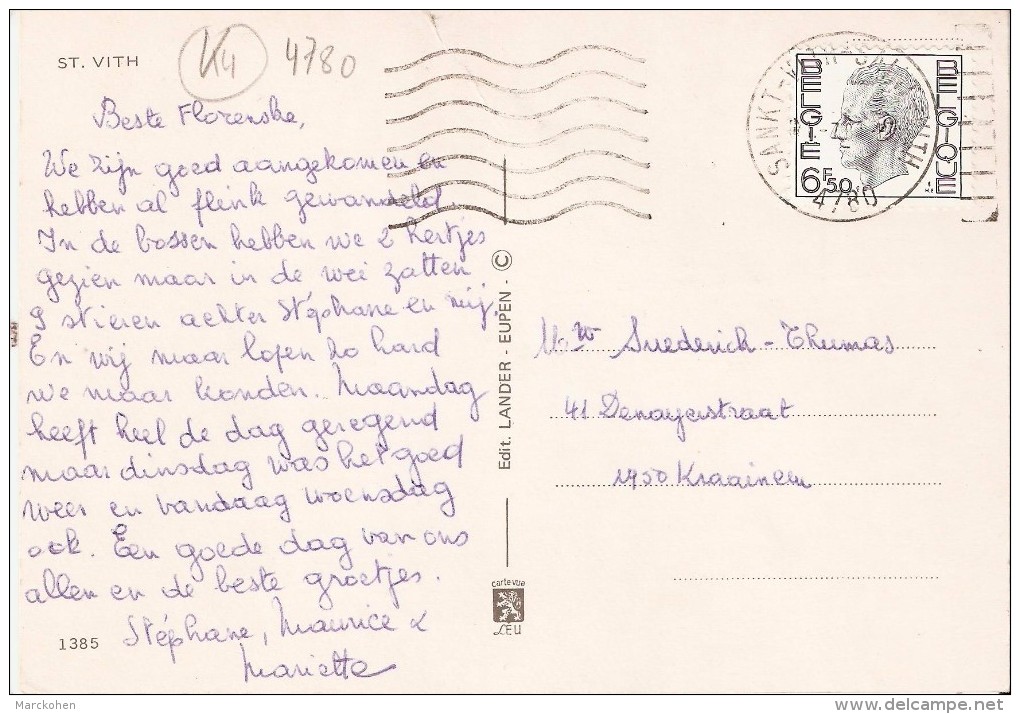 ST. VITH
K4
4780
Beste Florenske,
We zijn goed aangekomen en
hebben al flink gewandeld.
In de bossen hebben we 2 hertjes
gezien maar in de wei zatten
9 stieren achter Stéphane en mij.
En wij maar lopen zo hard
we maar konden. Maandag
heeft heel de dag geregend
maar dinsdag was het goed
weer en vandaag woensdag
ook. Een goede dag van ons
allen en de beste groetjes.
Stéphane, Maurice &
Mariette
1385
Edit. LANDER - EUPEN - ©
carte vue
LEU
BELGIE
BELGIQUE
6F50
SANKT-VITH
4780
Mw - Thumas
41 Denayerstraat
1950 Kraainem
Marckohen
delcampe.net